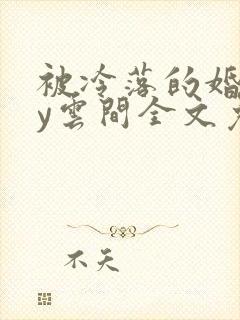 被冷落的婚
y雲間全文免
不天